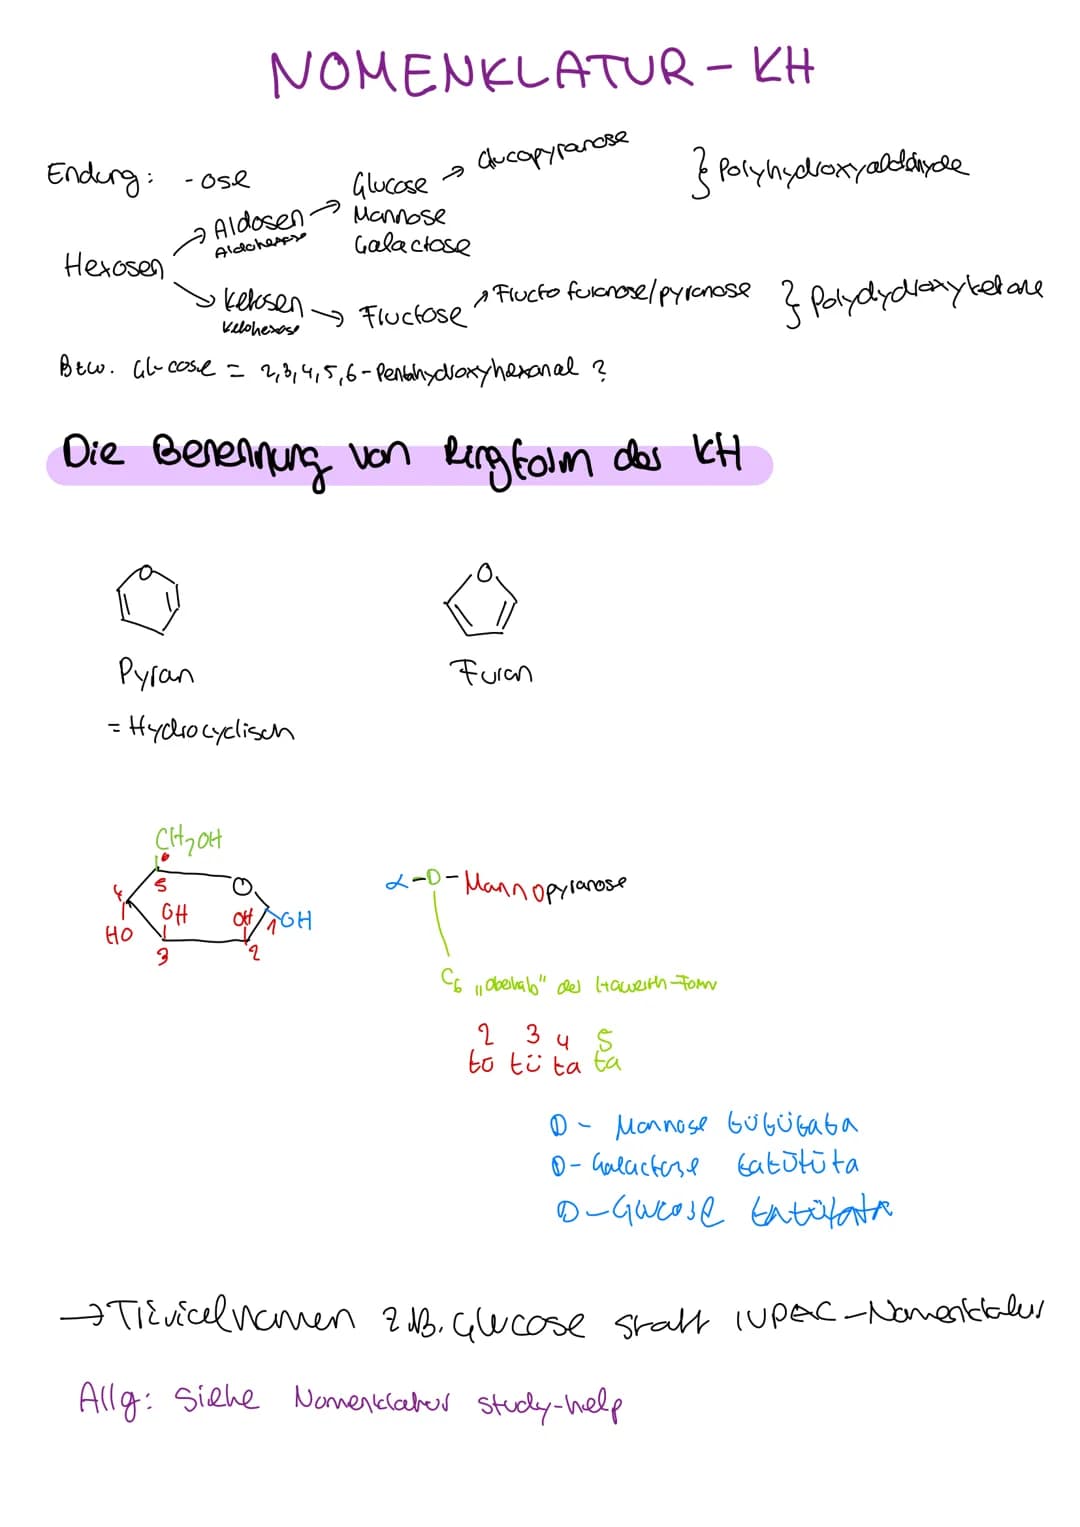 NOMENKLATUR - KH
Endung: -ose
Glucose → Glucopyranose
} Polyhydroxyaldehyde
Aldosen → Mannose
Aldohexose
Galactose
Hexosen
Ketosen → Fructose
Ketohexose
Fructofuranose/pyranose } Polydydroxyketone
Btw. Glucose = 2,3,4,5,6-Pentahydroxyhexanal ?
Die Benennung von Ringform des KH
O O
Pyran Furan
= Hydrocyclisch
CH2OH
6
5 O
4 OH OH 1 OH
HO
3 2
α-D-Mannopyranose
C6 „oberhalb" der Haworth-Form
2 3 4 5
tü tü ta ta
D - Mannose tütütata
D - Galactose tatütüta
D - Glucose tatütata
→ Trivialnamen z.B. Glucose statt IUPAC-Nomenklatur
Allg: Siehe Nomenklatur study-help